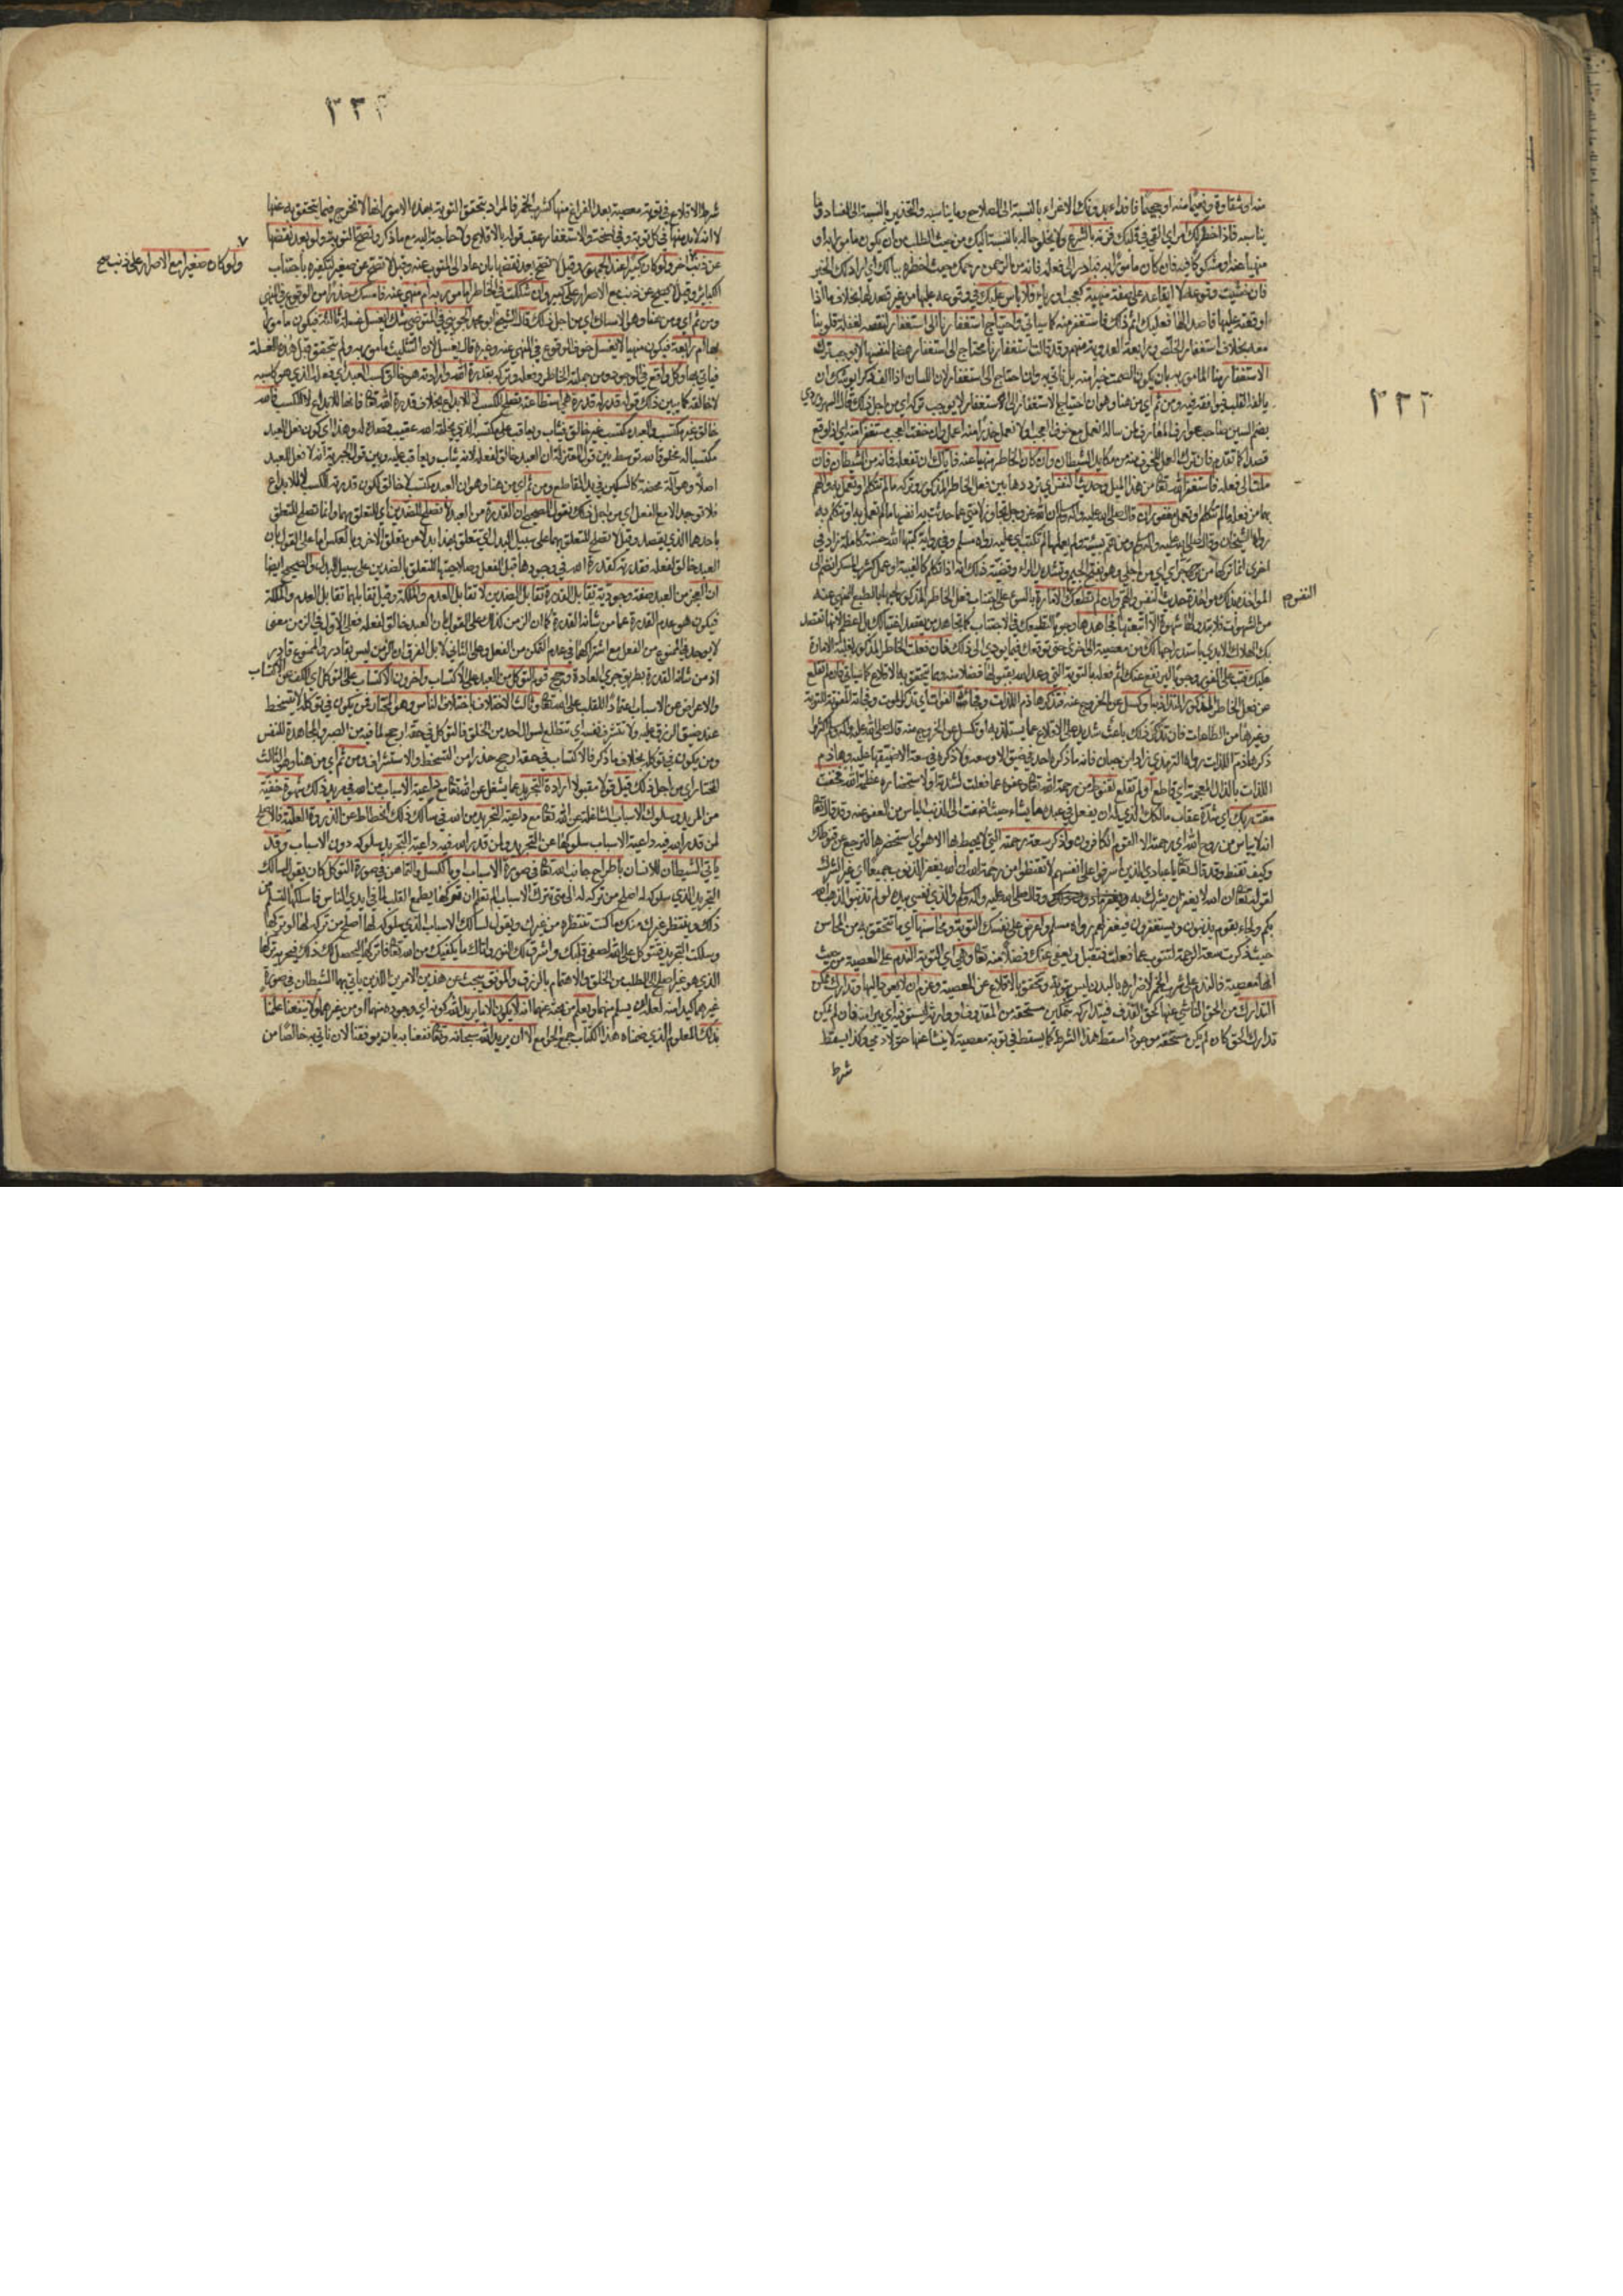 ٢٢٣
منه او شقاوة ونعيما منه او جحيما فاقداء بدونك الاغراء بالنسبة الى الصلاح وما يناسبه والتحذير بالنسبة الى الفساد وما
يناسبه فاذا خطر لك امر اي القي في قلبك فزنه بالشرع ولا يخلو حاله بالنسبة اليك من حيث الطلب من ان يكون مامورا به او
منهيا عنه او مشكوكا فيه فان كان مامورا به فبادر الى فعله فانه من الرحمن رحمك حيث اخطره ببالك اي اراد لك الخير
فان خشيت وقوعه لا ايقاعه على صفة منهية كعجب او رياء فلا باس عليك في وقوعه عليها من غير قصد لها بخلاف ما اذا
اوقعته عليها قاصدا لها فعليك اثم ذلك فاستغفر منه كما سياتي واحتياج استغفارنا الى استغفار لنقصه لغفلة قلوبنا
معه بخلاف استغفار الخلص ورابعة العدوية منهم وقد قالت استغفارنا محتاج الى استغفار هضما لنفسها لا يوجب ترك
الاستغفار منا المامور به بان يكون الصمت خيرا منه بل ناتي به وان احتاج الى استغفار لان اللسان اذا الف ذكرا يوشك ان
يالفه القلب فيوافقه فيه ومن ثم اي من هنا وهو ان احتياج الاستغفار الى الاستغفار لا يوجب تركه اي من اجل ذلك قال السهروردي
بضم السين صاحب عوارف المعارف لمن ساله انعمل مع خوف العجب او لا نعمل حذرا منه اعمل وان خفت العجب مستغفرا منه اي اذا وقع
قصدا كما تقدم فان ترك العمل للخوف منه من مكايد الشيطان وان كان الخاطر منهيا عنه فاياك ان تفعله فانه من الشيطان فان
ملت الى فعله فاستغفر الله تعالى من هذا الميل وحديث النفس اي ترددها بين فعل الخاطر المذكور وتركه ما لم تتكلم او تعمل به والهم
بها من فعله ما لم تتكلم او تعمل مغفوران قال صلى الله عليه وسلم ان الله عز وجل تجاوز لامتي عما حدثت به انفسها ما لم تعمل به او تتكلم به
رواه الشيخان وقال صلى الله عليه وسلم ومن هم بسيئة ولم يعملها لم تكتب اي عليه رواه مسلم وفي رواية كتبها الله حسنة كاملة زاد في
اخرى انما تركها من جراي اي من اجلي وهو بفتح الجيم وتشديد الراء وقضية ذلك انه اذا تكلم كالغيبة او عمل كشرب المسكر انضم الى
المؤاخذة بذلك مؤاخذة حديث النفس والهم وان لم تطعك الامارة بالسوء على اجتناب فعل الخاطر المذكور لحبها بالطبع للمنهي عنه
النفس
من الشهوات فلا تبدو لها شهوة الا اتبعتها فجاهدها وجوبا لتطيعك في الاجتناب كما تجاهد من يقصد اغتيالك بل اعظم لانها تقصد
بك الهلاك الابدي باستدراجها لك من معصية الى اخرى حتى توقعك فيما يؤدي الى ذلك فان فعلت الخاطر المذكور لغلبة الامارة
عليك فتب على الفور وجوبا ليرتفع عنك اثم فعله بالتوبة التي وعد الله بقبولها فضلا منه ومما تتحقق به الاقلاع كما سياتي فان لم تقلع
عن فعل الخاطر المذكور لاستلذاذ به او كسل عن الخروج منه فتذكر هاذم اللذات وفجاة الفوات اي تذكر الموت وفجاته المفوتة للتوبة
وغيرها من الطاعات فان تذكر ذلك باعث شديد على الاقلاع عما يستلذ به او تكسل عن الخروج منه قال صلى الله عليه وسلم اكثروا
ذكر هاذم اللذات رواه الترمذي زاد ابن حبان فانه ما ذكره احد في ضيق الا وسعه ولا ذكره في سعة الا ضيقها عليه وهاذم
اللذات بالذال المعجمة اي قاطع او لم تقلع لقنوط من رحمة الله تعالى وعفوه عما فعلت لشدته او لاستحضار عظمة الله فخف
مقت ربك اي شدة عقاب مالكك الذي له ان يفعل في عبده ما يشاء حيث اضفت الى الذنب الياس من العفو عنه وقد قال تعالى
انه لا يياس من روح الله اي رحمته الا القوم الكافرون واذكر سعة رحمته التي لا يحيط بها الا هو اي استحضرها لترجع عن قنوطك
وكيف تقنط وقد قال تعالى يا عبادي الذين اسرفوا على انفسهم لا تقنطوا من رحمة الله ان الله يغفر الذنوب جميعا اي غير الشرك
لقوله تعالى ان الله لا يغفر ان يشرك به ويغفر ما دون ذلك وقال صلى الله عليه وسلم والذي نفسي بيده لو لم تذنبوا لذهب الله
بكم ولجاء بقوم يذنبون ويستغفرون فيغفر لهم رواه مسلم واعرض على نفسك التوبة ومحاسنها اي ما تتحقق به من المحاسن
حيث ذكرت سعة الرحمة لتتوب عما فعلت فتقبل ويعفى عنك فضلا منه تعالى وهي اي التوبة الندم على المعصية من حيث
انها معصية فالندم على شرب الخمر لاضراره بالبدن ليس بتوبة وتتحقق بالاقلاع عن المعصية وعزم ان لا يعود اليها وتدارك ممكن
التدارك من الحق الناشي عنها كحق القذف فيتداركه بتمكين مستحقه من المقذوف او وارثه ليستوفيه او يبرئ منه فان لم يمكن
تدارك الحق كان لم يكن مستحقه موجودا سقط هذا الشرط كما يسقط في توبة معصية لا ينشا عنها حق لادمي وكذا يسقط
شرط
٢٢٣
شرط الاقلاع في توبة معصية بعد الفراغ منها كشرب الخمر فالمراد بتحقق التوبة بهذه الامور انها لا تخرج فيما تتحقق به عنها
لا انه لا بد منها في كل توبة وفي نسخة والاستغفار عقب قوله بالاقلاع ولا حاجة اليه مع ما ذكر وتصح التوبة ولو بعد نقضها
عن ذنب ولو كان صغيرا مع الاصرار على ذنب اخر ولو كان كبيرا عند الجمهور وقيل لا تصح بعد نقضها بان عاد الى المتوب عنه وقيل لا تصح عن صغير لتكفيره باجتناب
الكبائر وقيل لا تصح عن ذنب مع الاصرار على كبير وان شككت في الخاطر امامور به ام منهي عنه فامسك حذرا من الوقوع في المنهي
ومن ثم اي ومن هنا وهو الامساك اي من اجل ذلك قال الشيخ ابو محمد الجويني في المتوضي يشك ايغسل غسلة ثالثة فيكون مامورا
بها ام رابعة فيكون منهيا لا يغسل خوف الوقوع في المنهي عنه وغيره قال يغسل لان التثليث مامور به ولم يتحقق قبل هذه الغسلة
فياتي بها وكل واقع في الوجود ومن جملته الخاطر وفعله وتركه بقدرة الله وارادته هو خالق كسب العبد اي فعله الذي هو كاسبه
لا خالقه كما يبين ذلك قوله قدر له قدرة هي استطاعته تصلح للكسب لا للابداع بخلاف قدرة الله تعالى فانها للابداع لا للكسب فالله
خالق غير مكتسب والعبد مكتسب غير خالق فيثاب ويعاقب على مكتسبه الذي يخلقه الله عقيب قصده له وهذا اي كون فعل العبد
مكتسبا له مخلوقا لله توسط بين قول المعتزلة ان العبد خالق لفعله لانه يثاب ويعاقب عليه وبين قول الجبرية انه لا فعل للعبد
اصلا وهو آلة محضة كالسكين في يد القاطع ومن ثم اي من هنا وهو ان العبد مكتسب لا خالق لكون قدرته للكسب لا للابداع
فلا توجد الا مع الفعل اي من اجل ذلك نقول الصحيح ان القدرة من العبد لا تصلح للضدين اي للتعلق بهما وانما تصلح للتعلق
باحدهما الذي يقصد وقيل لا تصلح للتعلق بهما على سبيل البدل اي تتعلق بهذا بدلا عن تعلقها بالاخر وبالعكس اما على القول بان
العبد خالق لفعله فقدرته كقدرة الله في وجودها قبل الفعل وصلاحيتها للتعلق بالضدين على سبيل البدل والصحيح ايضا
ان العجز من العبد صفة وجودية تقابل القدرة تقابل الضدين لا تقابل العدم والملكة وقيل تقابلهما تقابل العدم والملكة
فيكون هو عدم القدرة عما من شانه القدرة كما ان الزمن كذلك على القول بان العبد خالق لفعله فعلى الاول في الزمن معنى
لا يوجد في الممنوع من الفعل مع اشتراكهما في عدم التمكن من الفعل وعلى الثاني لا بل الفرق ان الزمن ليس بقادر والممنوع قادر
اذ من شانه القدرة بطريق جري العادة ورجح قوم التوكل من العبد على الاكتساب واخرون الاكتساب على التوكل اي الكف عن الاكتساب
والاعراض عن الاسباب اعتمادا للقلب على الله تعالى وثالث الاختلاف باختلاف الناس وهو المختار فمن يكون في توكله لا يتسخط
عند ضيق الرزق عليه ولا تستشرف نفسه اي تتطلع لسؤال احد من الخلق فالتوكل في حقه ارجح لما فيه من الصبر والمجاهدة للنفس
ومن يكون في توكله بخلاف ما ذكر فالاكتساب في حقه ارجح حذرا من التسخط والاستشراف ومن ثم اي من هنا وهو الثالث
المختار اي من اجل ذلك قيل قولا مقبولا ارادة التجريد عما يشغل عن الله تعالى مع داعية الاسباب من الله في مريد ذلك شهوة خفية
من المريد وسلوك الاسباب الشاغلة عن الله تعالى مع داعية التجريد من الله في سالك ذلك انحطاط عن الذروة العلية فالاصلح
لمن قدر الله فيه داعية الاسباب سلوكها دون التجريد ولمن قدر الله فيه داعية التجريد سلوكه دون الاسباب وقد
ياتي الشيطان للانسان باطراح جانب الله تعالى في صورة الاسباب او بالكسل والتماهن في صورة التوكل كان يقول لسالك
التجريد الذي سلوكه له اصلح من تركه له الى متى تترك الاسباب الم تعلم ان تركها يطمع القلب لما في ايدي الناس فاسلكها لتسلم من
ذلك وينتظر غيرك منك ما كنت تنتظره من غيرك ويقول لسالك الاسباب الذي سلوكه لها اصلح من تركه لها لو تركتها
وسلكت التجريد فتتوكل على الله لصفى قلبك واشرق لك النور واتاك ما يكفيك من الله تعالى فاتركها ليحصل لك ذلك فيجر به تركها
الذي هو غير اصلح له الى الطلب من الخلق والاهتمام بالرزق والموفق يبحث عن هذين الامرين الذين ياتي بهما الشيطان في صورة
غيرهما كيدا منه لعله ان يسلم منهما ويعلم مع بحثه عنهما انه لا يكون الا ما يريد الله كونه اي وجوده منهما او من غيرهما ولا ينفعنا علمنا
بذلك المعلوم الذي ضمناه هذا الكتاب جمع الجوامع الا ان يريد الله سبحانه وتعالى نفعنا به بان يوفقنا لان ناتي به خالصا من